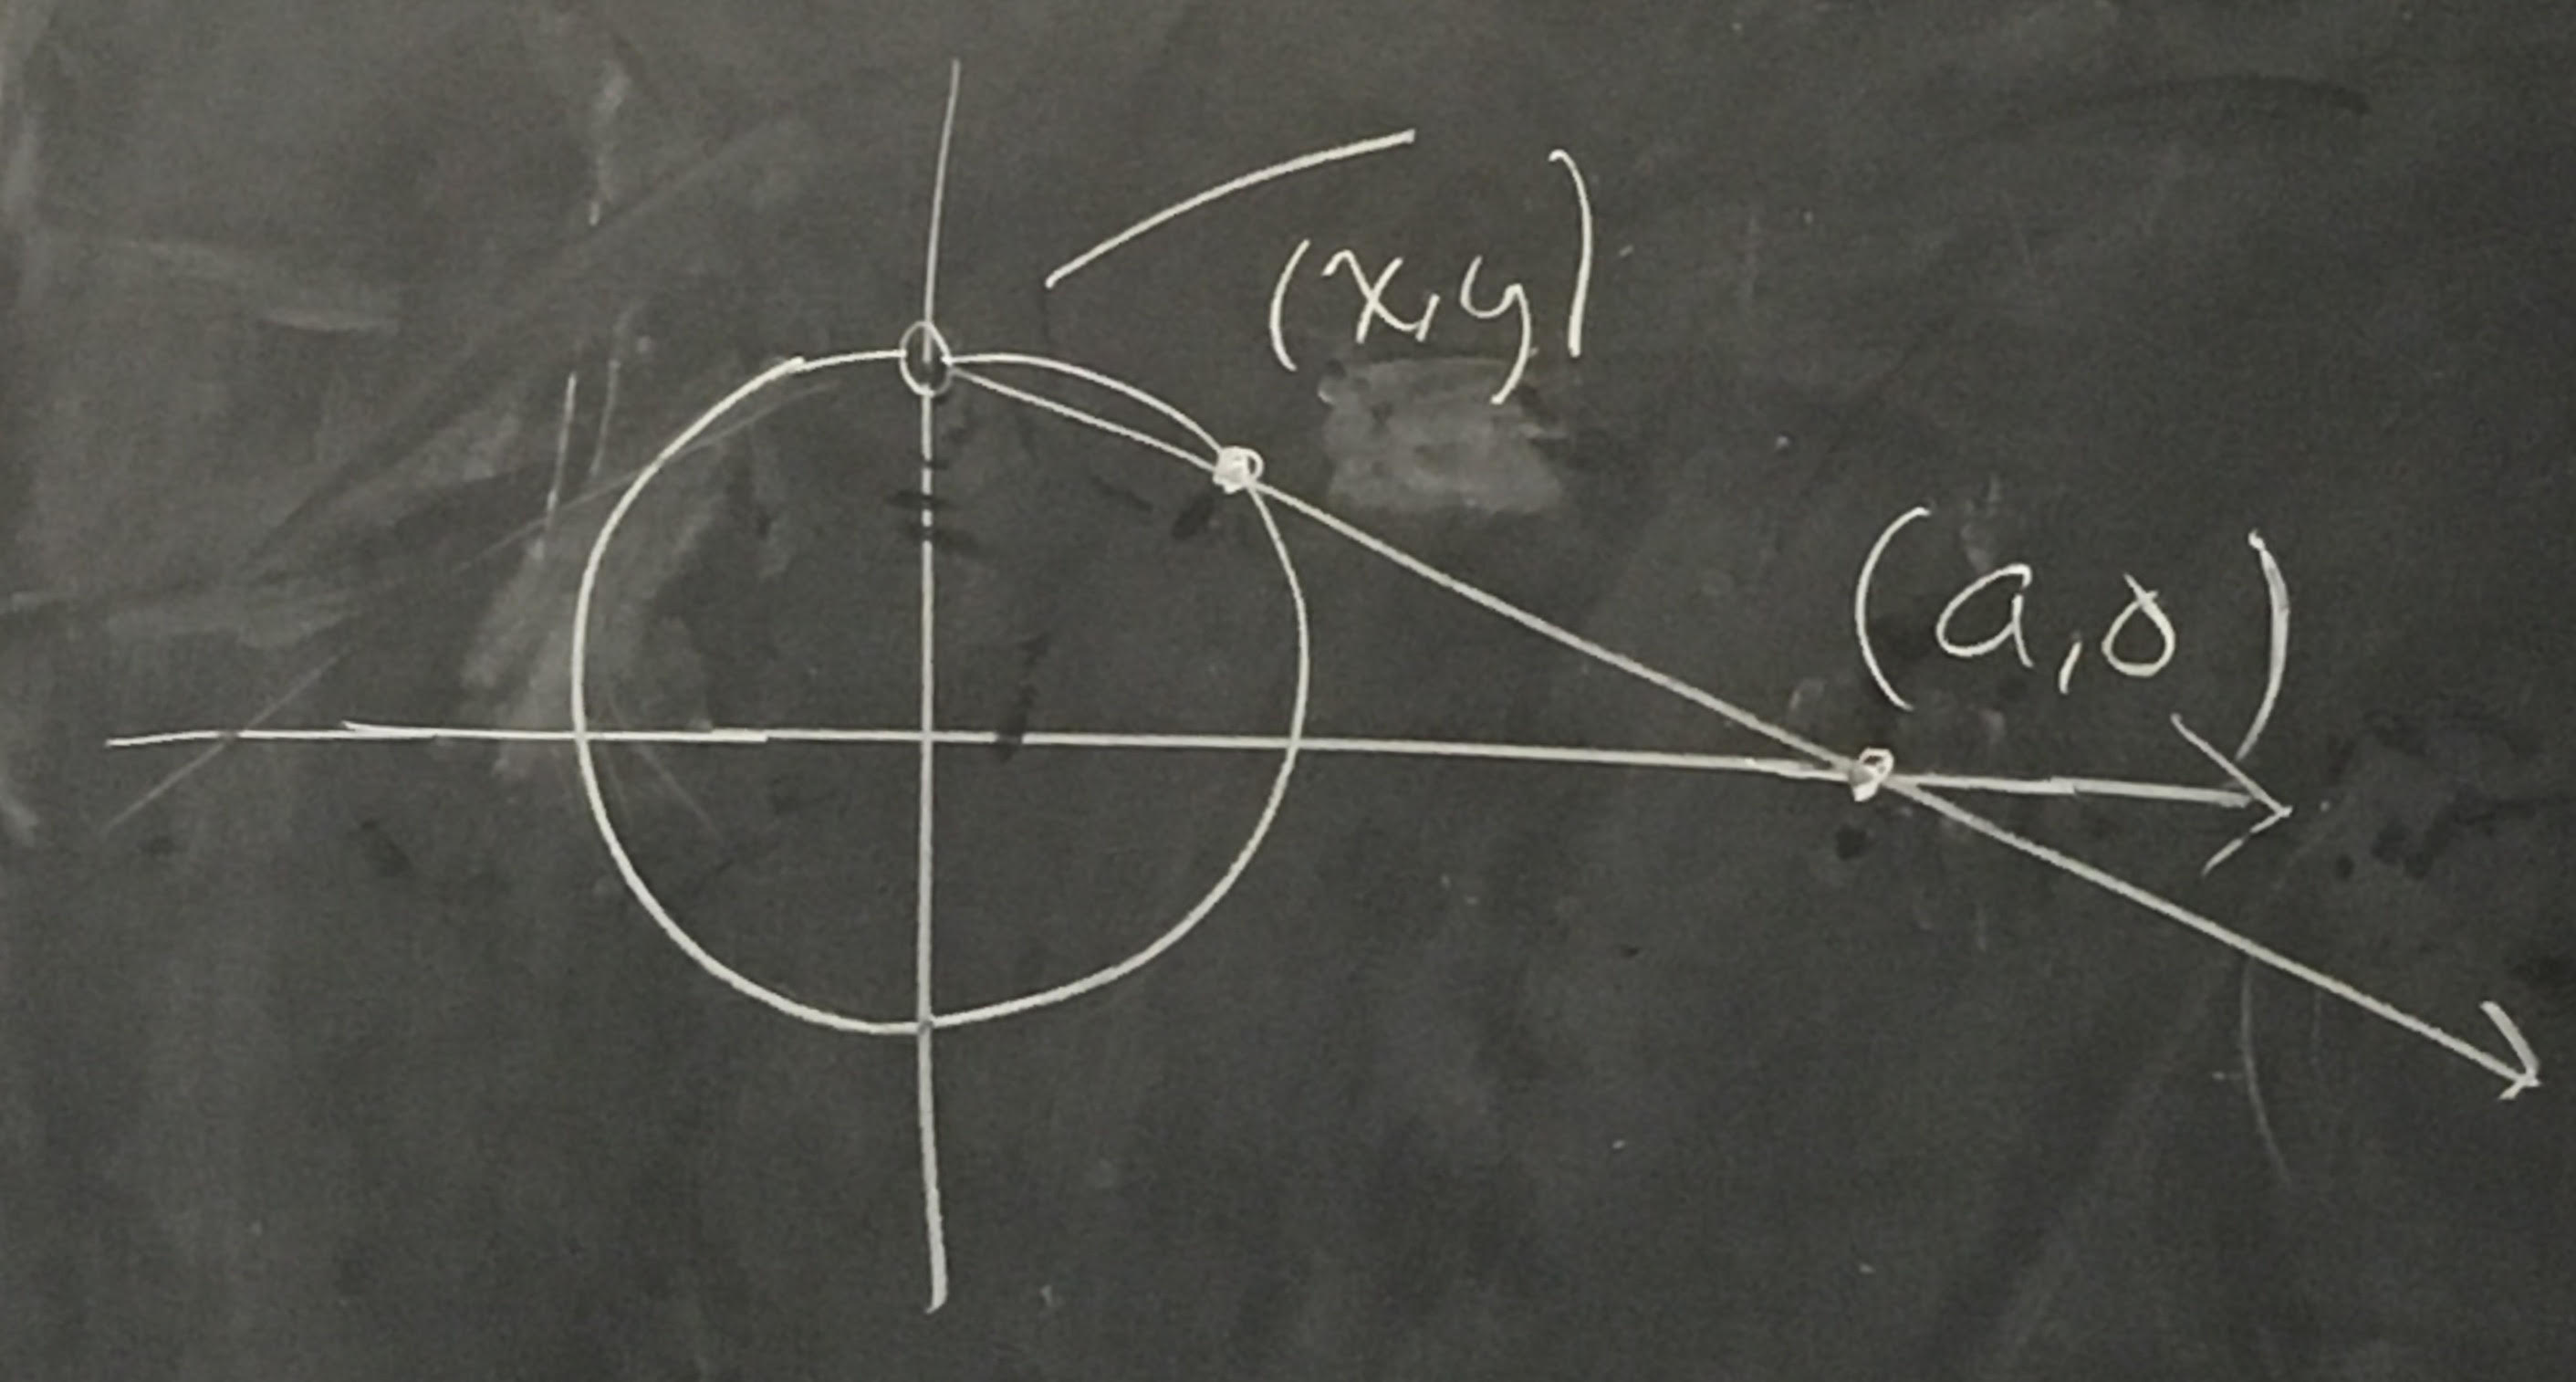 (x,y)
(a,0)